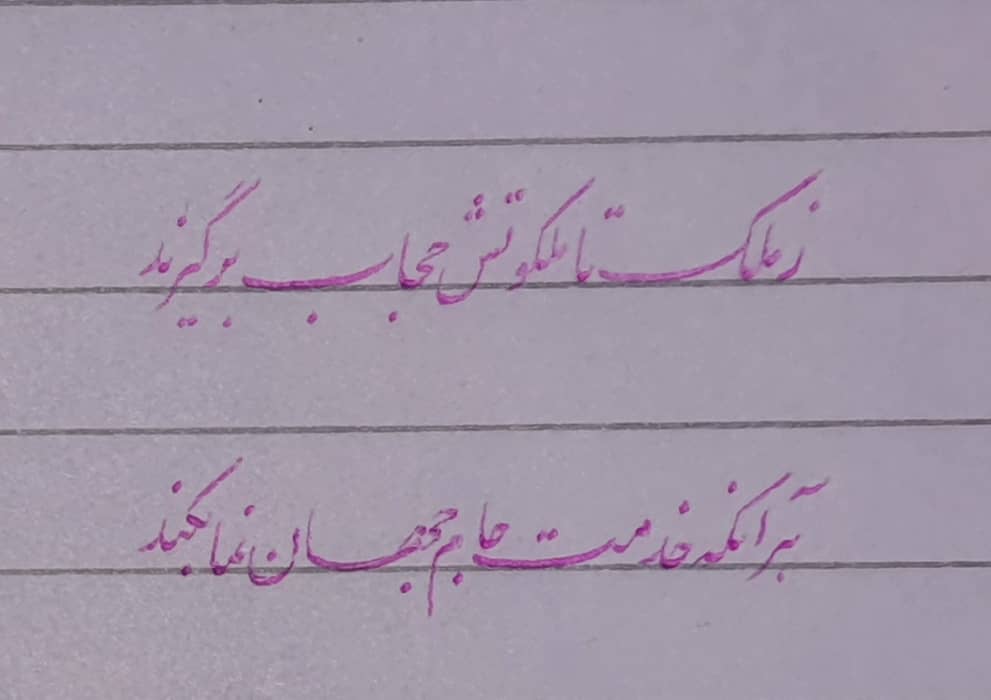 ز ملک تا ملکوتش حجاب برگیرند
هر آنکه خدمت جام جهان نما بکند